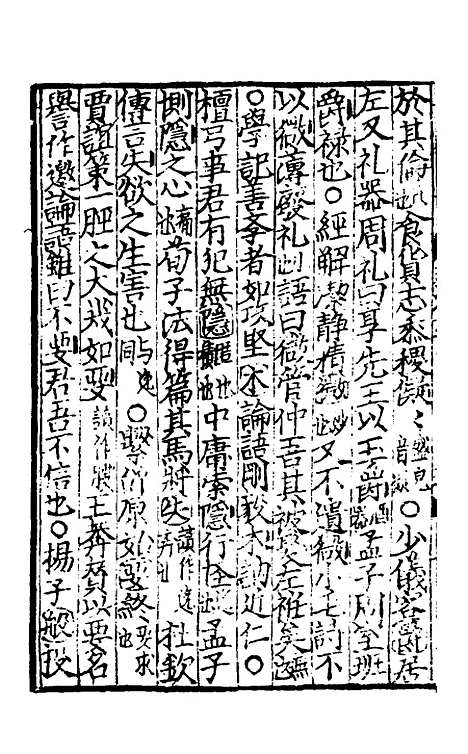 於其倫也食貨志黍稷儗〻盛皃音○少儀客爵居
左又礼器周礼曰享先王以玉爵酒器孟子周室班
爵禄也○經解潔静精微妙又不遺微小七詩不
以微薄發礼也語曰微管仲吾其被髮左衽矣無
○學記善學者如攻堅木論語剛毅木訥近仁○
檀弓事君有犯無隱也中庸索隱行怪也孟子
惻隱之心痛也荀子法篇其馬將失讀作逸杜欽
傳言失欲之生害也与同○繫衍原始要終也要求
賈誼第一脛之大幾如要讀作腰王莽以要名
譽作邀論語雖曰不要君吾不信也○揚子般投